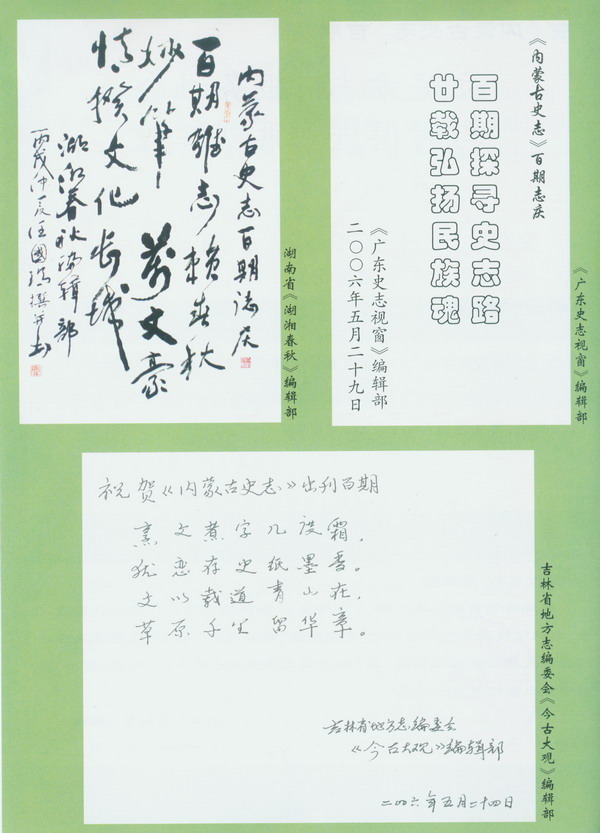 内蒙古史志百期誌庆
百期志赖春秋
妙笔文豪
文化长城
湖湘春秋编辑部
丙戌仲夏汪國瑞撰并书
湖南省《湖湘春秋》编辑部
《内蒙古史志》百期志庆
百期探寻史志路
廿载弘扬民族魂
《广东史志视窗》编辑部
二〇〇六年五月二十九日
《广东史志视窗》编辑部
祝贺《内蒙古史志》出刊百期
烹文煮字几度霜，
犹恋存史纸墨香。
文以载道青山在，
草原千里留华章。
吉林省地方志编委会
《今古大观》编辑部
二00六年五月二十四日
吉林省地方志编委会《今古大观》编辑部